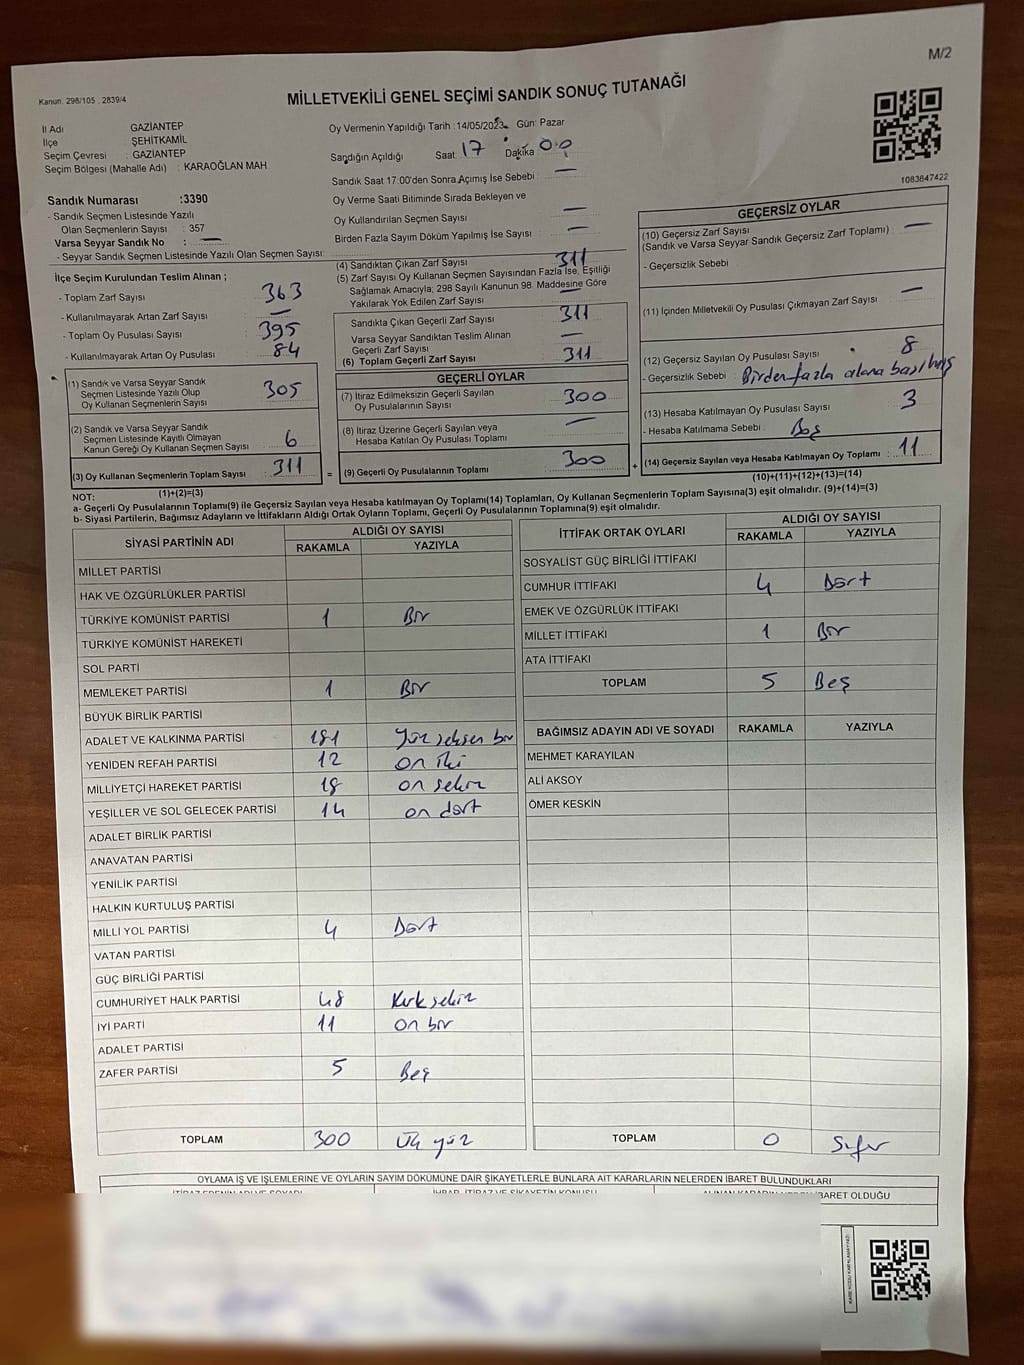 M/2
Kanun: 298/105 , 2839/4
MİLLETVEKİLİ GENEL SEÇİMİ SANDIK SONUÇ TUTANAĞI
İl Adı GAZİANTEP
İlçe ŞEHİTKAMİL
Seçim Çevresi : GAZİANTEP
Seçim Bölgesi (Mahalle Adı) : KARAOĞLAN MAH.
Sandık Numarası :3390
- Sandık Seçmen Listesinde Yazılı
Olan Seçmenlerin Sayısı : 357
Varsa Seyyar Sandık No : —
- Seyyar Sandık Seçmen Listesinde Yazılı Olan Seçmen Sayısı:
Oy Vermenin Yapıldığı Tarih :14/05/2023 Gün: Pazar
Sandığın Açıldığı Saat: 17 Dakika 00
Sandık Saat 17:00'den Sonra Açımış İse Sebebi : —
Oy Verme Saati Bitiminde Sırada Bekleyen ve
Oy Kullandırılan Seçmen Sayısı : —
Birden Fazla Sayım Döküm Yapılmış İse Sayısı : —
1083847422
İlçe Seçim Kurulundan Teslim Alınan ;
- Toplam Zarf Sayısı : 363
- Kullanılmayarak Artan Zarf Sayısı : —
- Toplam Oy Pusulası Sayısı : 395
- Kullanılmayarak Artan Oy Pusulası : 84
(1) Sandık ve Varsa Seyyar Sandık
Seçmen Listesinde Yazılı Olup
Oy Kullanan Seçmenlerin Sayısı : 305
(2) Sandık ve Varsa Seyyar Sandık
Seçmen Listesinde Kayıtlı Olmayan
Kanun Gereği Oy Kullanan Seçmen Sayısı : 6
(3) Oy Kullanan Seçmenlerin Toplam Sayısı : 311
(1)+(2)=(3)
(4) Sandıktan Çıkan Zarf Sayısı : 311
(5) Zarf Sayısı Oy Kullanan Seçmen Sayısından Fazla İse, Eşitliği
Sağlamak Amacıyla; 298 Sayılı Kanunun 98. Maddesine Göre
Yakılarak Yok Edilen Zarf Sayısı : —
Sandıkta Çıkan Geçerli Zarf Sayısı : 311
Varsa Seyyar Sandıktan Teslim Alınan
Geçerli Zarf Sayısı : —
(6) Toplam Geçerli Zarf Sayısı : 311
GEÇERLİ OYLAR
(7) İtiraz Edilmeksizin Geçerli Sayılan
Oy Pusulalarının Sayısı : 300
(8) İtiraz Üzerine Geçerli Sayılan veya
Hesaba Katılan Oy Pusulası Toplamı : —
= (9) Geçerli Oy Pusulalarının Toplamı : 300
GEÇERSİZ OYLAR
(10) Geçersiz Zarf Sayısı
(Sandık ve Varsa Seyyar Sandık Geçersiz Zarf Toplamı) : —
- Geçersizlik Sebebi :
(11) İçinden Milletvekili Oy Pusulası Çıkmayan Zarf Sayısı : —
(12) Geçersiz Sayılan Oy Pusulası Sayısı : 8
- Geçersizlik Sebebi : Birden fazla alana basılmış
(13) Hesaba Katılmayan Oy Pusulası Sayısı : 3
- Hesaba Katılmama Sebebi : Boş
+ (14) Geçersiz Sayılan veya Hesaba Katılmayan Oy Toplamı : 11
(10)+(11)+(12)+(13)=(14)
NOT:
a- Geçerli Oy Pusulalarının Toplamı(9) ile Geçersiz Sayılan veya Hesaba katılmayan Oy Toplamı(14) Toplamları, Oy Kullanan Seçmenlerin Toplam Sayısına(3) eşit olmalıdır. (9)+(14)=(3)
b- Siyasi Partilerin, Bağımsız Adayların ve İttifakların Aldığı Ortak Oyların Toplamı, Geçerli Oy Pusulalarının Toplamına(9) eşit olmalıdır.
SİYASİ PARTİNİN ADI ALDIĞI OY SAYISI
RAKAMLA YAZIYLA
MİLLET PARTİSİ
HAK VE ÖZGÜRLÜKLER PARTİSİ
TÜRKİYE KOMÜNİST PARTİSİ 1 Bir
TÜRKİYE KOMÜNİST HAREKETİ
SOL PARTİ
MEMLEKET PARTİSİ 1 Bir
BÜYÜK BİRLİK PARTİSİ
ADALET VE KALKINMA PARTİSİ 181 Yüz seksen bir
YENİDEN REFAH PARTİSİ 12 on iki
MİLLİYETÇİ HAREKET PARTİSİ 18 on sekiz
YEŞİLLER VE SOL GELECEK PARTİSİ 14 on dört
ADALET BİRLİK PARTİSİ
ANAVATAN PARTİSİ
YENİLİK PARTİSİ
HALKIN KURTULUŞ PARTİSİ
MİLLİ YOL PARTİSİ 4 Dört
VATAN PARTİSİ
GÜÇ BİRLİĞİ PARTİSİ
CUMHURİYET HALK PARTİSİ 48 Kırk sekiz
İYİ PARTİ 11 on bir
ADALET PARTİSİ
ZAFER PARTİSİ 5 Beş
TOPLAM 300 Üç yüz
İTTİFAK ORTAK OYLARI ALDIĞI OY SAYISI
RAKAMLA YAZIYLA
SOSYALİST GÜÇ BİRLİĞİ İTTİFAKI
CUMHUR İTTİFAKI 4 Dört
EMEK VE ÖZGÜRLÜK İTTİFAKI
MİLLET İTTİFAKI 1 Bir
ATA İTTİFAKI
TOPLAM 5 Beş
BAĞIMSIZ ADAYIN ADI VE SOYADI RAKAMLA YAZIYLA
MEHMET KARAYILAN
ALİ AKSOY
ÖMER KESKİN
TOPLAM 0 Sıfır
OYLAMA İŞ VE İŞLEMLERİNE VE OYLARIN SAYIM DÖKÜMÜNE DAİR ŞİKAYETLERLE BUNLARA AİT KARARLARIN NELERDEN İBARET BULUNDUKLARI
İBARET OLDUĞU